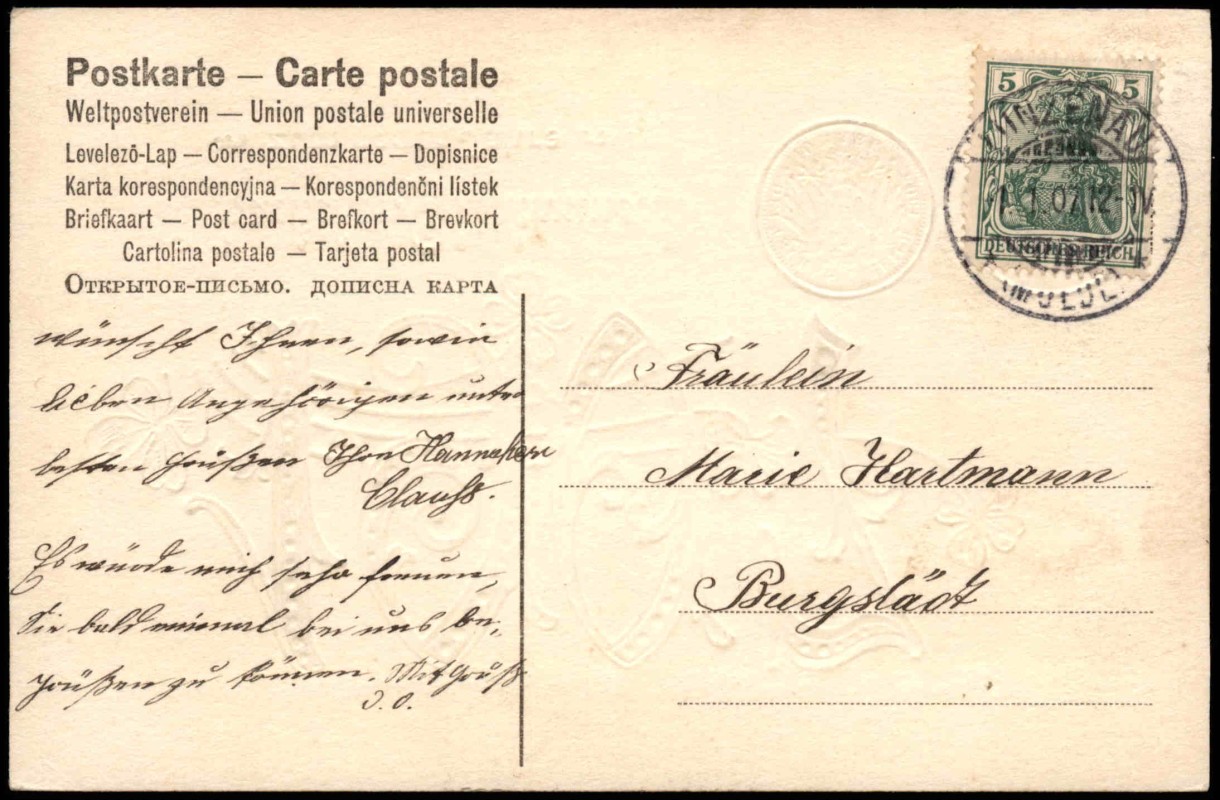 Postkarte — Carte postale
Weltpostverein — Union postale universelle
Levelező-Lap — Correspondenzkarte — Dopisnice
Karta korespondencyjna — Korespondenčni lístek
Briefkaart — Post card — Brefkort — Brevkort
Cartolina postale — Tarjeta postal
Открытое-письмо. дописна карта
5 5
DEUTSCHES REICH
1.1.07.12-1V.
wünscht Ihnen, sowie
lieben Angehörigen unter
besten Grüßen Ihre
Clauß.
Es würde mich sehr freuen,
Sie bald einmal bei uns be-
grüßen zu können. Mit Gruß
D. O.
Fräulein
Marie Hartmann
Burgstädt